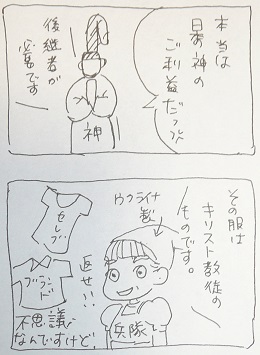 本当は
日本の神の
ご利益だった
後継者が
必要です
神
その服は
キリスト教徒の
ものです。
ウクライナ
製
セレブ
ブランド
返せ!!
兵隊
不思議
なんですけど、